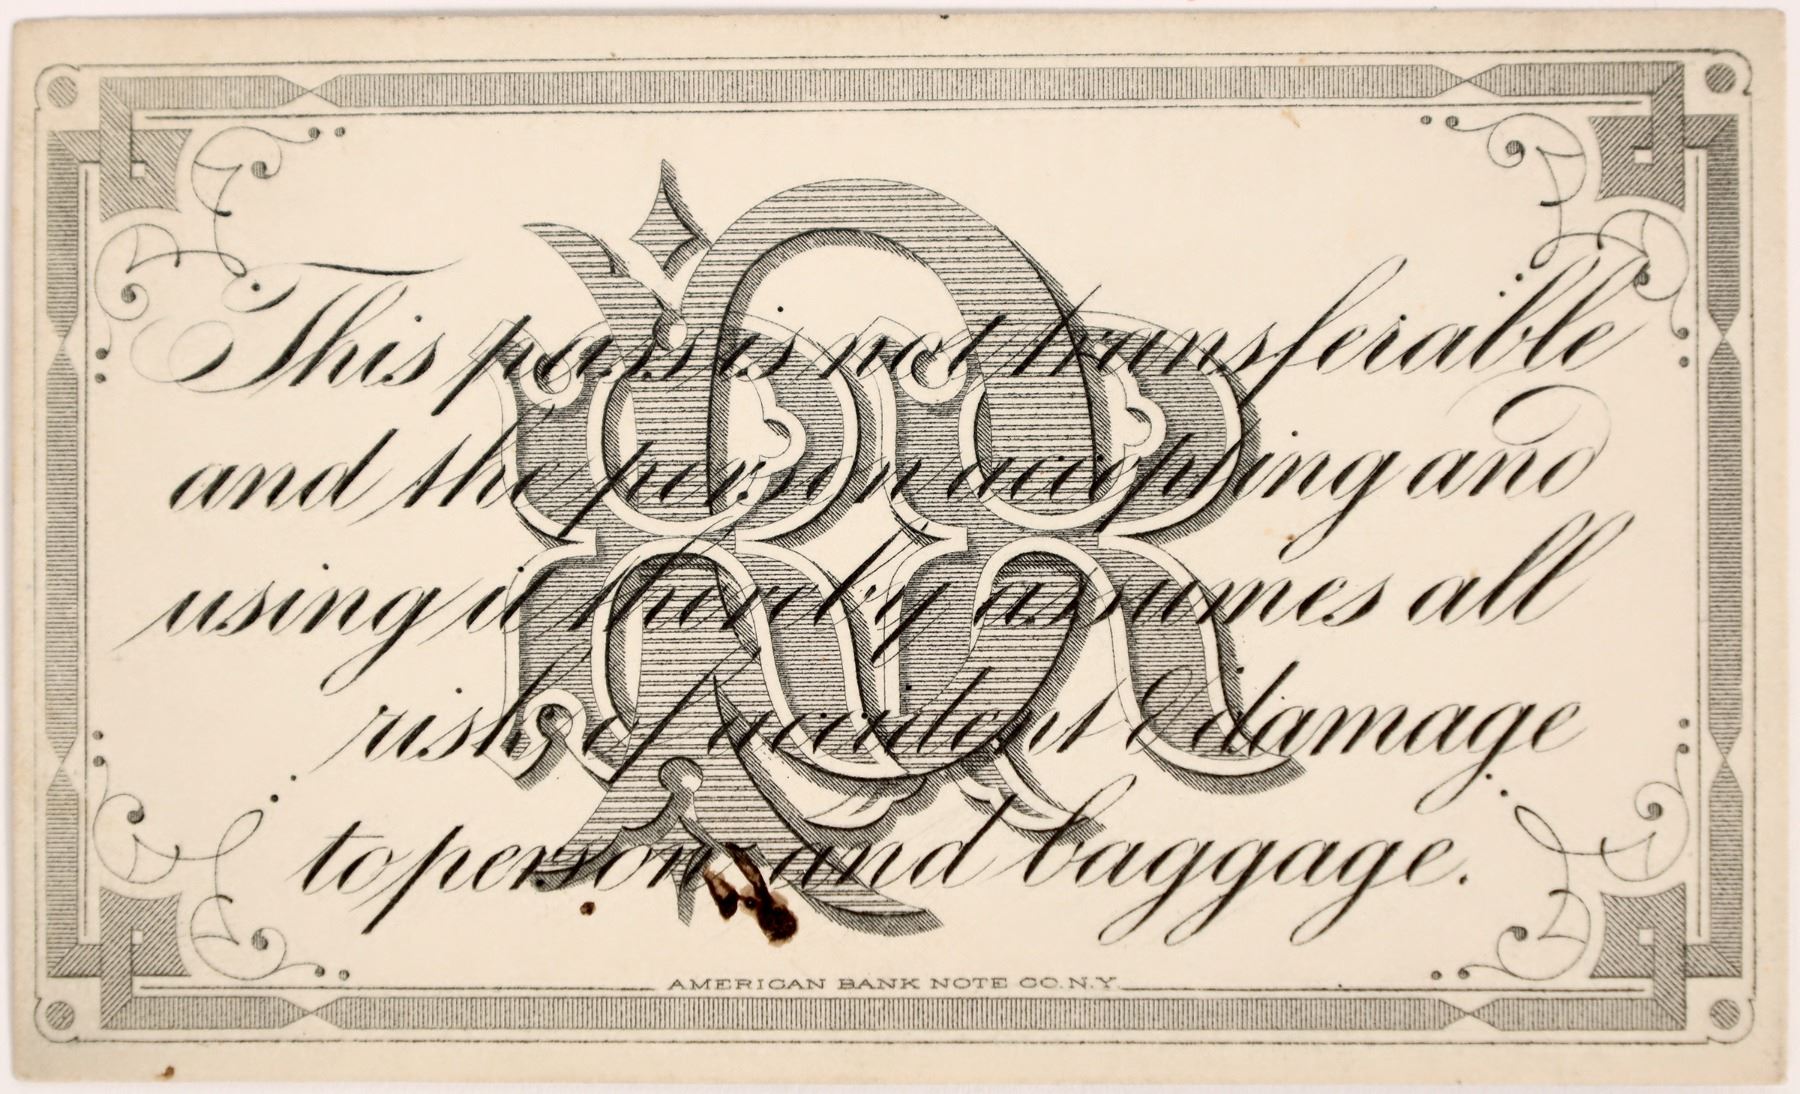 This pass is not transferable
and the person accepting and
using it thereby assumes all
risk of accident & damage
to person and baggage.
AMERICAN BANK NOTE CO. N.Y.